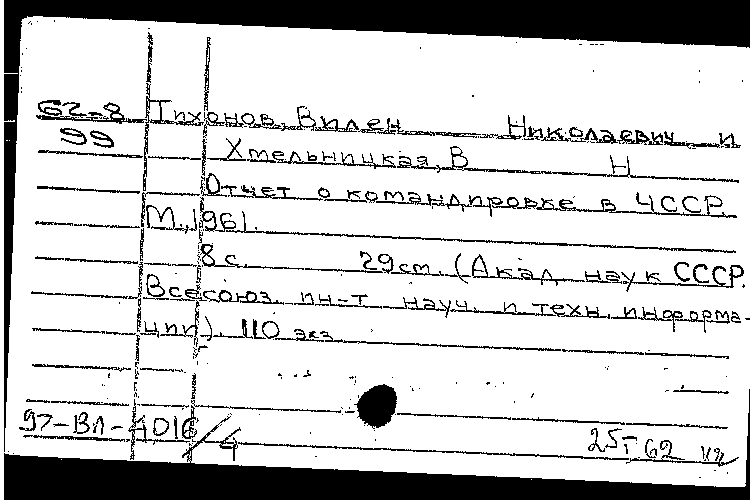 62-8 Тихонов, Вилен Николаевич и
99 Хмельницкая, В Н
Отчет о командировке в ЧССР.
М., 1961.
8 с. 29 см. (Акад. наук СССР.
Всесоюз. ин-т науч. и техн. информа-
ции). 110 экз.
97-ВЛ-4016/4
25 I 62